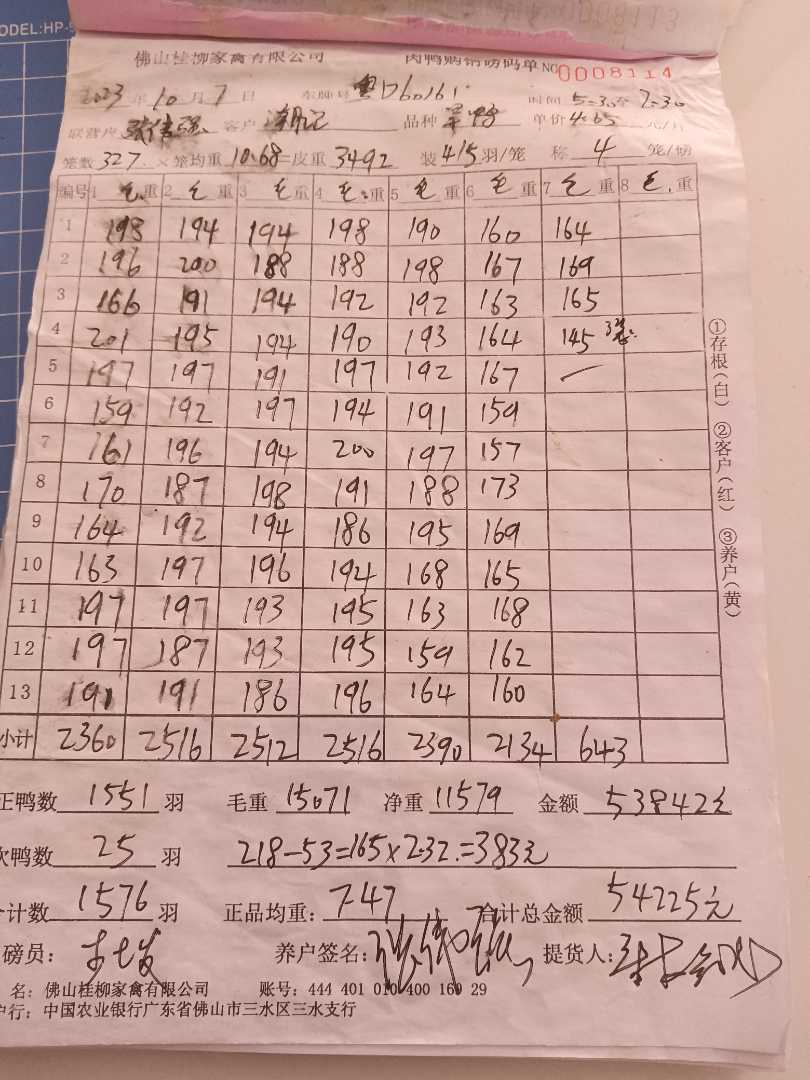 MODEL:HP-
0008113
佛山桂柳家禽有限公司 肉鸭购销磅码单 NO 0008114
2023年10月7日 车牌号 粤D60161 时间 5:30至7:30
联营户 张伟强 客户 品种 单价 4.65 元/斤
笼数 327 ×笼均重 10.68=皮重 3492 装 4/5 羽/笼 称 4 笼/磅
编号 1 毛重 2 毛重 3 毛重 4 毛重 5 毛重 6 毛重 7 毛重 8 毛重
1 198 194 194 198 190 160 164
2 196 200 188 188 198 167 169
3 166 191 194 192 192 163 165
4 201 195 194 190 193 164 145 3笼
5 197 197 191 197 192 167 —
6 159 192 197 194 191 159
7 161 196 194 200 197 157
8 170 187 198 191 188 173
9 164 192 194 186 195 169
10 163 197 196 194 168 165
11 197 197 193 195 163 168
12 197 187 193 195 159 162
13 191 191 186 196 164 160
小计 2360 2516 2512 2516 2390 2134 643
①存根(白) ②客户(红) ③养户(黄)
正鸭数 1551 羽 毛重 15071 净重 11579 金额 53842元
次鸭数 25 羽 218-53=165×2.32=383元
合计数 1576 羽 正品均重: 7.47 合计总金额 54225元
磅员: 养户签名: 张伟强 提货人:
名: 佛山桂柳家禽有限公司 账号: 444 401 010 400 160 29
户行: 中国农业银行广东省佛山市三水区三水支行